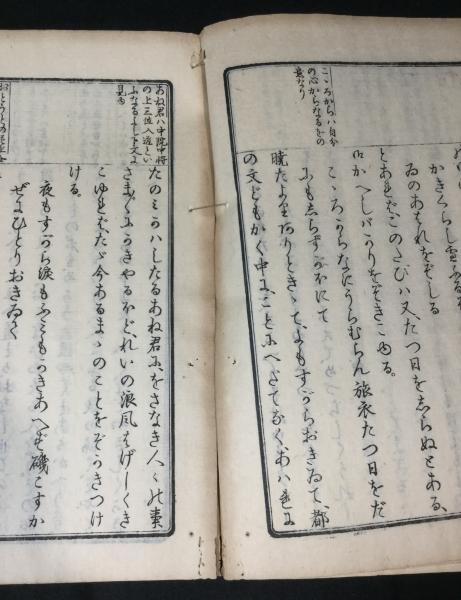 かきくらし雪ふる
ゐのあはれをぞしる
とあれバ、このたびハ又たつ日をしらぬとある、
御かへしバかりをぞきこゆる。
こゝろからなにうらむらん旅衣たつ日をだ
にもしらずがほにて
暁たよりありときゝて、よもすがらおきゐて、都
の文どもかく中に、ことにへだてなく、あはれに
こゝろからハ自分
の心からなるをの
意なり
たのミかハしたるあね君に、をさなき人〳〵の事
さま〴〵にかきやるほど、れいの浪風はげしくき
こゆれば、たゞ今あるまゝのことをぞかきつけ
ける。
夜もすがら涙もふミもかきあへず磯こすか
ぜにひとりおきゐて
あね君ハ中院中将
の上三位入道とい
ふなるよし下文に
見ゆ